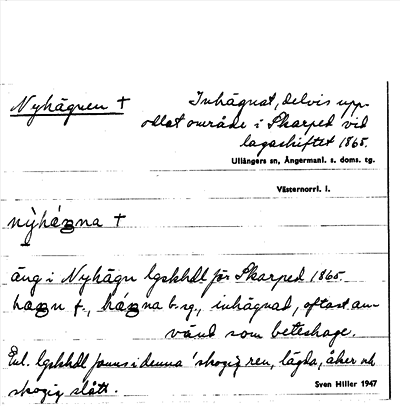 Nyhägnen †
Inhägnat, delvis upp-
odlat område i Skarped vid
lagaskiftet 1865.
Ullångers sn, Ångermanl. s. doms. tg.
Västernorrl. l.
nỳhá̱gna †
äng i Nyhägn lgskhdl för Skarped 1865.
hagn f., hágna b. sg., inhägnad, oftast an-
vänd som beteshage.
Enl. lgskhdl fanns i denna 'skogig ren, lägda, åker och
skogig slått'.
Sven Hiller 1947